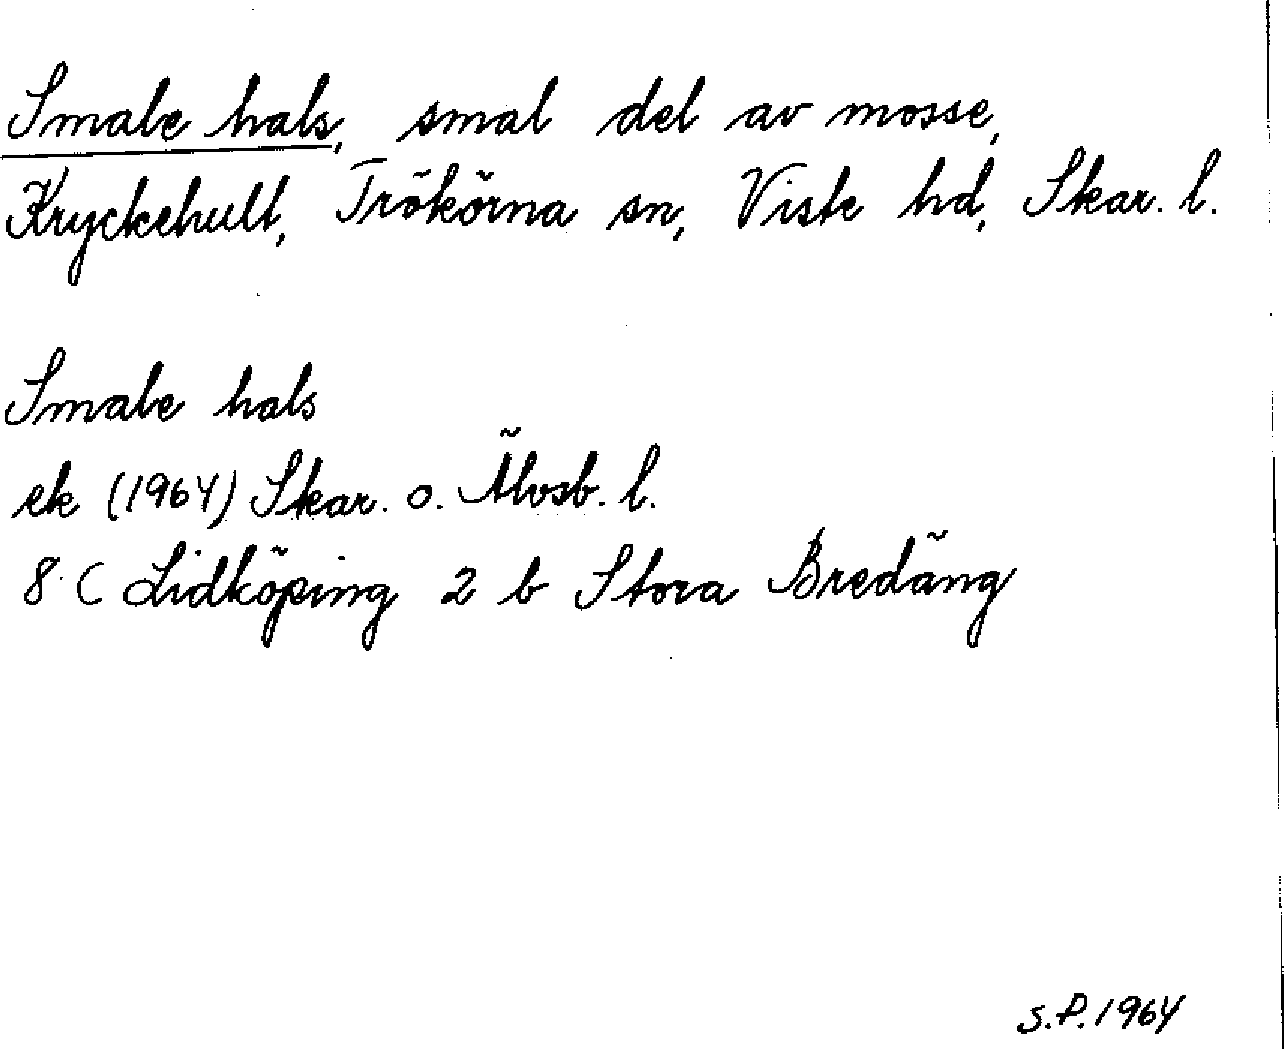 Smale hals, smal del av mosse,
Kryckehult, Trökörna sn, Viste hd, Skar. l.
Smale hals
ek (1964) Skar. o. Älvsb. l.
8 C Lidköping 2 b Stora Bredäng
S.P. 1964